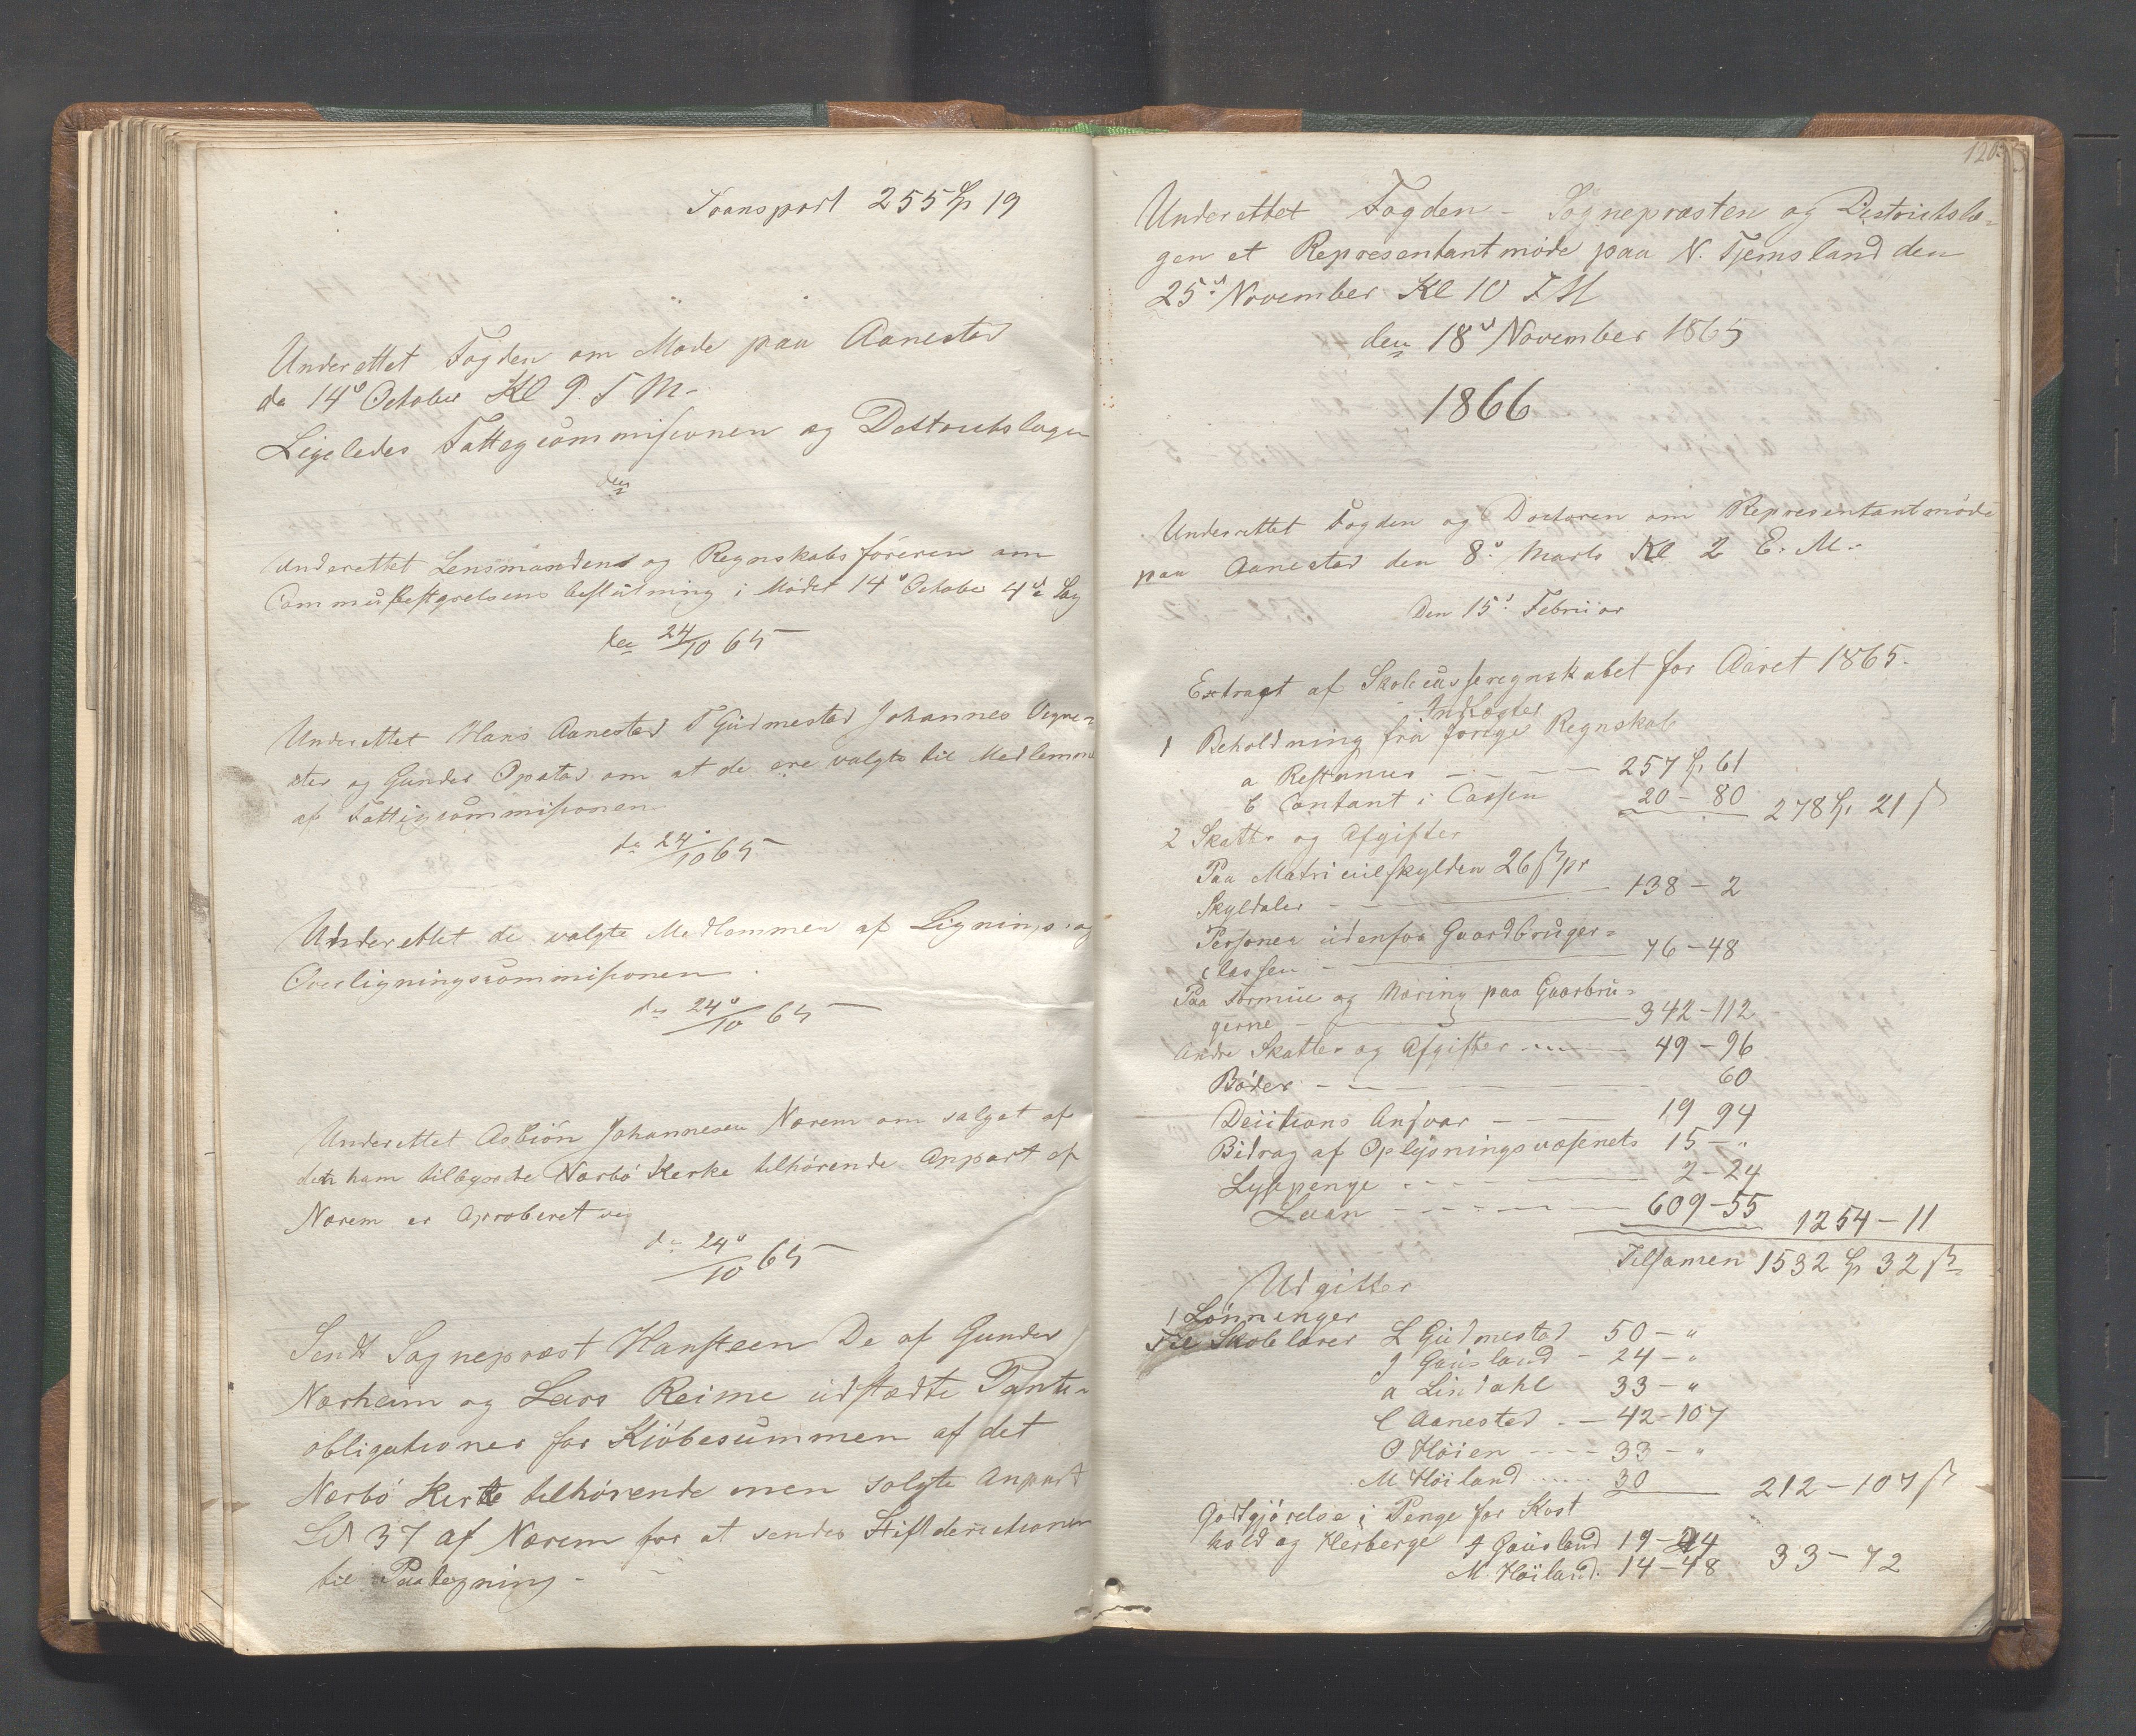 Transport 255 Sp 19
Underettet Fogden om Møde paa Aanestad
de 14de October Kl 9 F M-
Ligeledes Fattigcommissionen og Destrictslægen
den
Underettet Lensmanden og Regnskabsføreren om
Commubestyrelsens beslutning i Mødet 14de October 4de Sag
den 24/10 65
Underettet Hans Aanestad T Gudmestad Johannes
og Gunder Opstad om at de ere valgte til Medlemer
af Fattigcommissionen
de 24/10 65
Underettet de valgte Medlemmer af Lignings og
Overligningscommissionen
de 24/10 65
Underettet Asbiön Johannesen Nærem om salget af
den ham tilbydde Nærbø Kerke tilhørende Anpart af
Nærem er Aproberet
de 24/10 65
Sendt Sognepræst Hansteen De af Gunder
Nærheim og Lars Reime udstædte Pante-
obligationer for Kiöbesummen af det
Nærbö Kerke tilhörende men solgte Anpart
LN 37 af Nærem for at sendes Stiftderectionen
til Paategning -
120.
Underettet Fogden - Sognepræsten og Destrictslæ-
gen et Representantmøde paa N. Tjemsland den
25de November Kl 10 F M
den 18de November 1865
1866
Underettet Fogden og Doctoren om Representantmöde
paa Aanestad den 8de Marts Kl 2 E. M.
Den 15de Februar
Extragt af Skolecasseregnskabet for Aaret 1865.
Indtægter
1 Beholdning fra forige Regnskab
a Restanser - - - - 257 Sp 61
b Contant i Cassen 20 - 80 278 Sp 21 ß
2 Skatter og Afgifter
Paa Matriculskylden 26 ß pr
Skyldaler - 138 - 2
Personer udenfor Gaardbruger=
classen - 76 - 48
Paa Formue og Næring paa Gaarbru=
gerne - 342 - 112
Andre Skatter og Afgifter 49 - 96
Bøder - - - 60
Deictions Ansvar - 19 94
Bidrag af Oplysningsvæsenets 15 - "
Lysepenge - - - 2 - 24
Laan - - - 609 - 55 1254 - 11
Tilsamen 1532 Sp 32 ß
Udgifter
1 Lønninger
Til Skolelærer L Gudmestad 50 - "
J Gausland - 24 - "
A Lindahl 33 - "
C Aanestad - 42 - 107
O Höien - - - 33 - "
M Höiland 30 212 - 107 ß
Godtgjørelse i Penge for Kost
hold og Herberge J Gausland 19 - 24
M. Höiland. 14 - 48 33 - 72